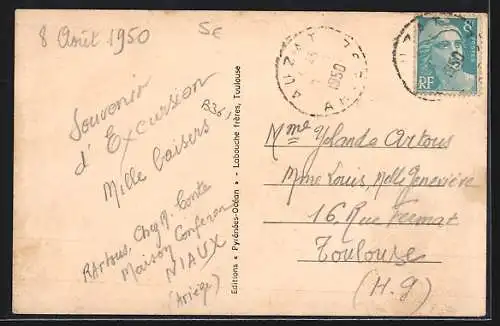 8 Août 1950
SE
Souvenir
d'Excursion
Mille baisers
RArtous, Chez M. Conte
Maison Conferon
NIAUX
(Ariège)
B361
Editions * Pyrénées-Océan * - Labouche frères, Toulouse
AUZAT
1950
RF
1950
Mme Yolande Artous
Mme Louis, Melle Geneviève
16, Rue Fermat
Toulouse
(H.g)